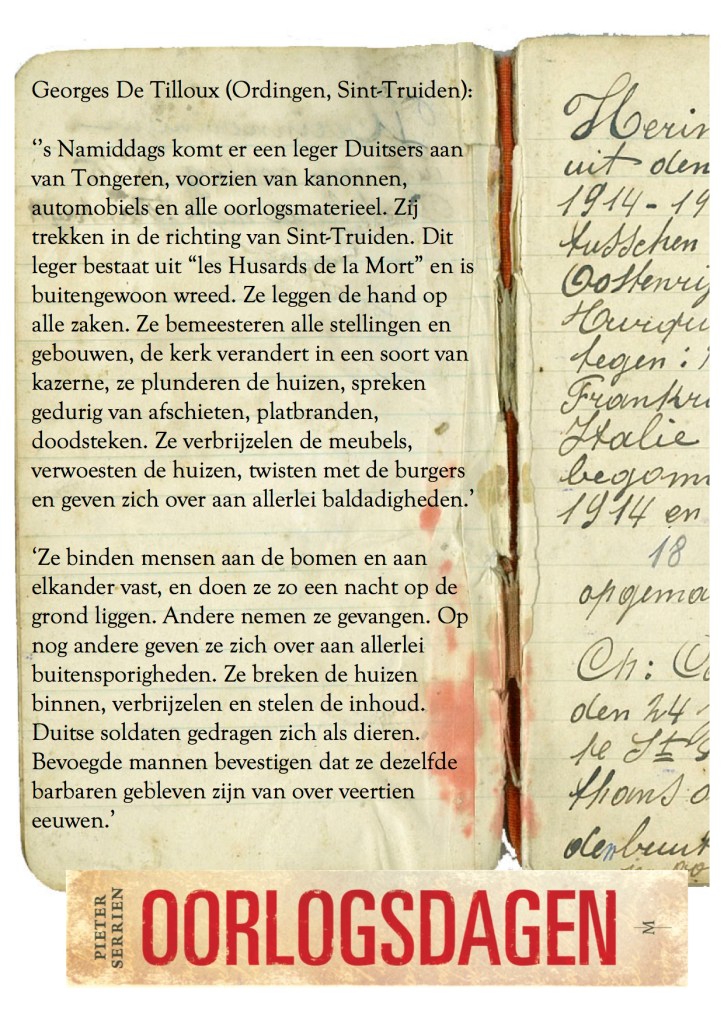 Georges De Tilloux (Ordingen, Sint-Truiden):
‘’s Namiddags komt er een leger Duitsers aan
van Tongeren, voorzien van kanonnen,
automobiels en alle oorlogsmaterieel. Zij
trekken in de richting van Sint-Truiden. Dit
leger bestaat uit “les Husards de la Mort” en is
buitengewoon wreed. Ze leggen de hand op
alle zaken. Ze bemeesteren alle stellingen en
gebouwen, de kerk verandert in een soort van
kazerne, ze plunderen de huizen, spreken
gedurig van afschieten, platbranden,
doodsteken. Ze verbrijzelen de meubels,
verwoesten de huizen, twisten met de burgers
en geven zich over aan allerlei baldadigheden.’
‘Ze binden mensen aan de bomen en aan
elkander vast, en doen ze zo een nacht op de
grond liggen. Andere nemen ze gevangen. Op
nog andere geven ze zich over aan allerlei
buitensporigheden. Ze breken de huizen
binnen, verbrijzelen en stelen de inhoud.
Duitse soldaten gedragen zich als dieren.
Bevoegde mannen bevestigen dat ze dezelfde
barbaren gebleven zijn van over veertien
eeuwen.’
Herin
uit den
1914-19
tusschen
Oostenrij
tegen:
Frankr
Italie
begon
1914 en
18
opgema
Ch:
den 24
te St
thans
PIETER
SERRIEN
OORLOGSDAGEN
M